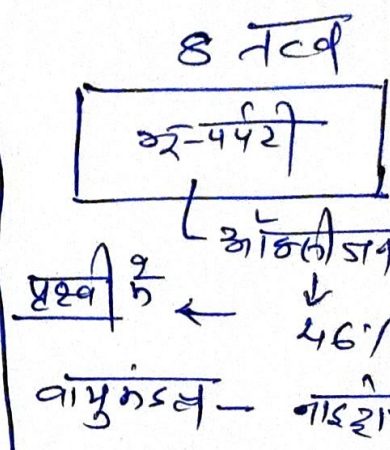 8 तत्व
भू-पर्पटी
ऑक्सीजन
पृथ्वी में ← 46%
वायुमंडल — नाइट्रो